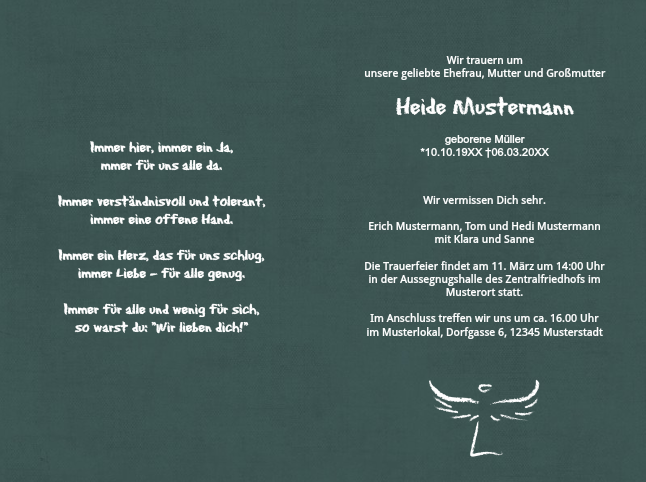 Immer hier, immer ein Ja,
mmer für uns alle da.
Immer verständnisvoll und tolerant,
immer eine offene Hand.
Immer ein Herz, das für uns schlug,
immer Liebe – für alle genug.
Immer für alle und wenig für sich,
so warst du: "Wir lieben dich!"
Wir trauern um
unsere geliebte Ehefrau, Mutter und Großmutter
Heide Mustermann
geborene Müller
*10.10.19XX †06.03.20XX
Wir vermissen Dich sehr.
Erich Mustermann, Tom und Hedi Mustermann
mit Klara und Sanne
Die Trauerfeier findet am 11. März um 14:00 Uhr
in der Aussegnugshalle des Zentralfriedhofs im
Musterort statt.
Im Anschluss treffen wir uns um ca. 16.00 Uhr
im Musterlokal, Dorfgasse 6, 12345 Musterstadt